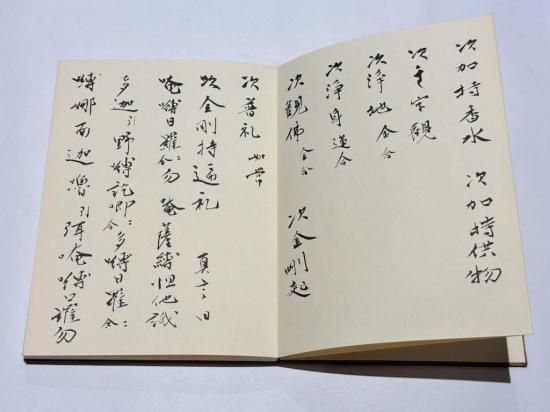 次加持香水 次加持供物
次主字観
次浄地 金合
次浄身 蓮合
次観佛 金合 次金剛起
次普礼 如常
次金剛持遍礼 真言曰
唵嚩日羅二合勿 唵薩嚩怛他誐
多迦引野嚩訖唧二合多嚩日羅二合
嚩娜南迦嚕引弭唵嚩日羅勿